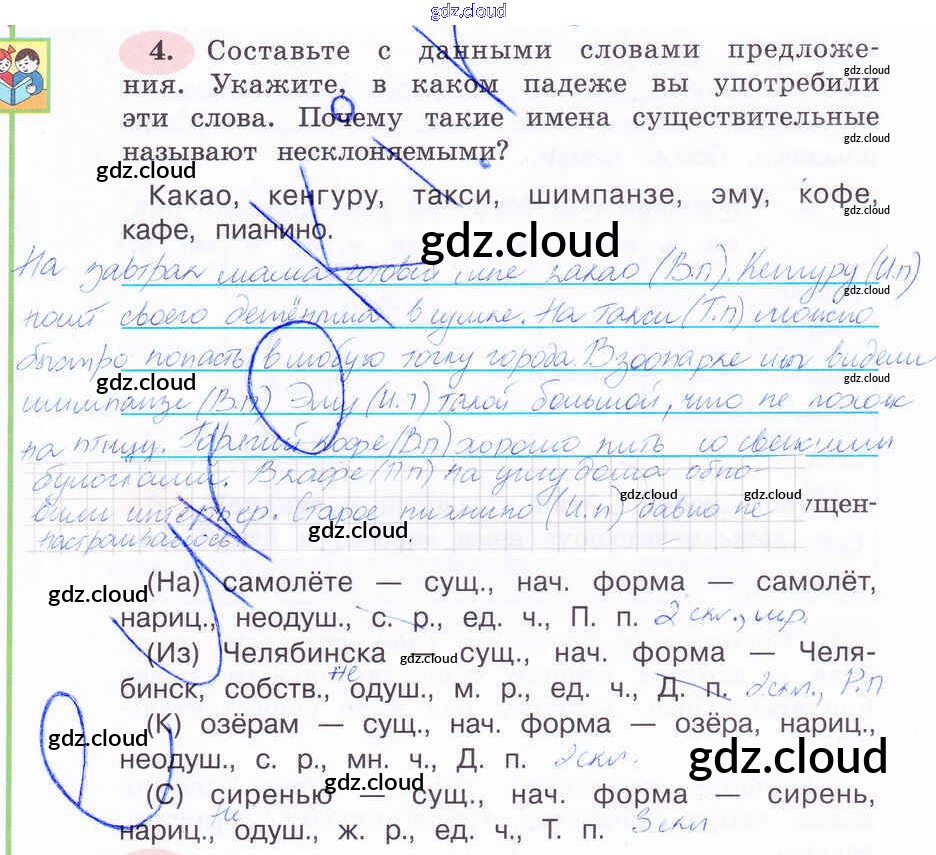 gdz.cloud
4. Составьте с данными словами предложе-
gdz.cloud
ния. Укажите, в каком падеже вы употребили
эти слова. Почему такие имена существительные
gdz.cloud
называют несклоняемыми?
gdz.cloud
Какао, кенгуру, такси, шимпанзе, эму, кофе,
gdz.cloud
кафе, пианино.
gdz.cloud
На завтрак мама готовит мне какао (В.п). Кенгуру (И.п)
gdz.cloud
поит своего детёныша в сумке. На такси (Т.п) можно
gdz.cloud
быстро попасть в любую точку города. В зоопарке мы видели
gdz.cloud
gdz.cloud
шимпанзе (В.п) Эму (И.п) такой большой, что не похож
на птицу. Горячий кофе (В.п) хорошо пить со свежими
булочками. В кафе (П.п) на углу дома обно-
gdz.cloud
gdz.cloud
вили интерьер. Старое пианино (И.п) давно не
ущен-
gdz.cloud
настраивалось.
(На) самолёте — сущ., нач. форма — самолёт,
gdz.cloud
нариц., неодуш., с. р., ед. ч., П. п. 2 скл., м.р.
(Из) Челябинска — сущ., нач. форма — Челя-
gdz.cloud
не
бинск, собств., одуш., м. р., ед. ч., Д. п. 2 скл., Р.п
(К) озёрам — сущ., нач. форма — озёра, нариц.,
gdz.cloud
неодуш., с. р., мн. ч., Д. п. 2 скл.
gdz.cloud
gdz.cloud
(С) сиренью — сущ., нач. форма — сирень,
не
нариц., одуш., ж. р., ед. ч., Т. п. 3 скл